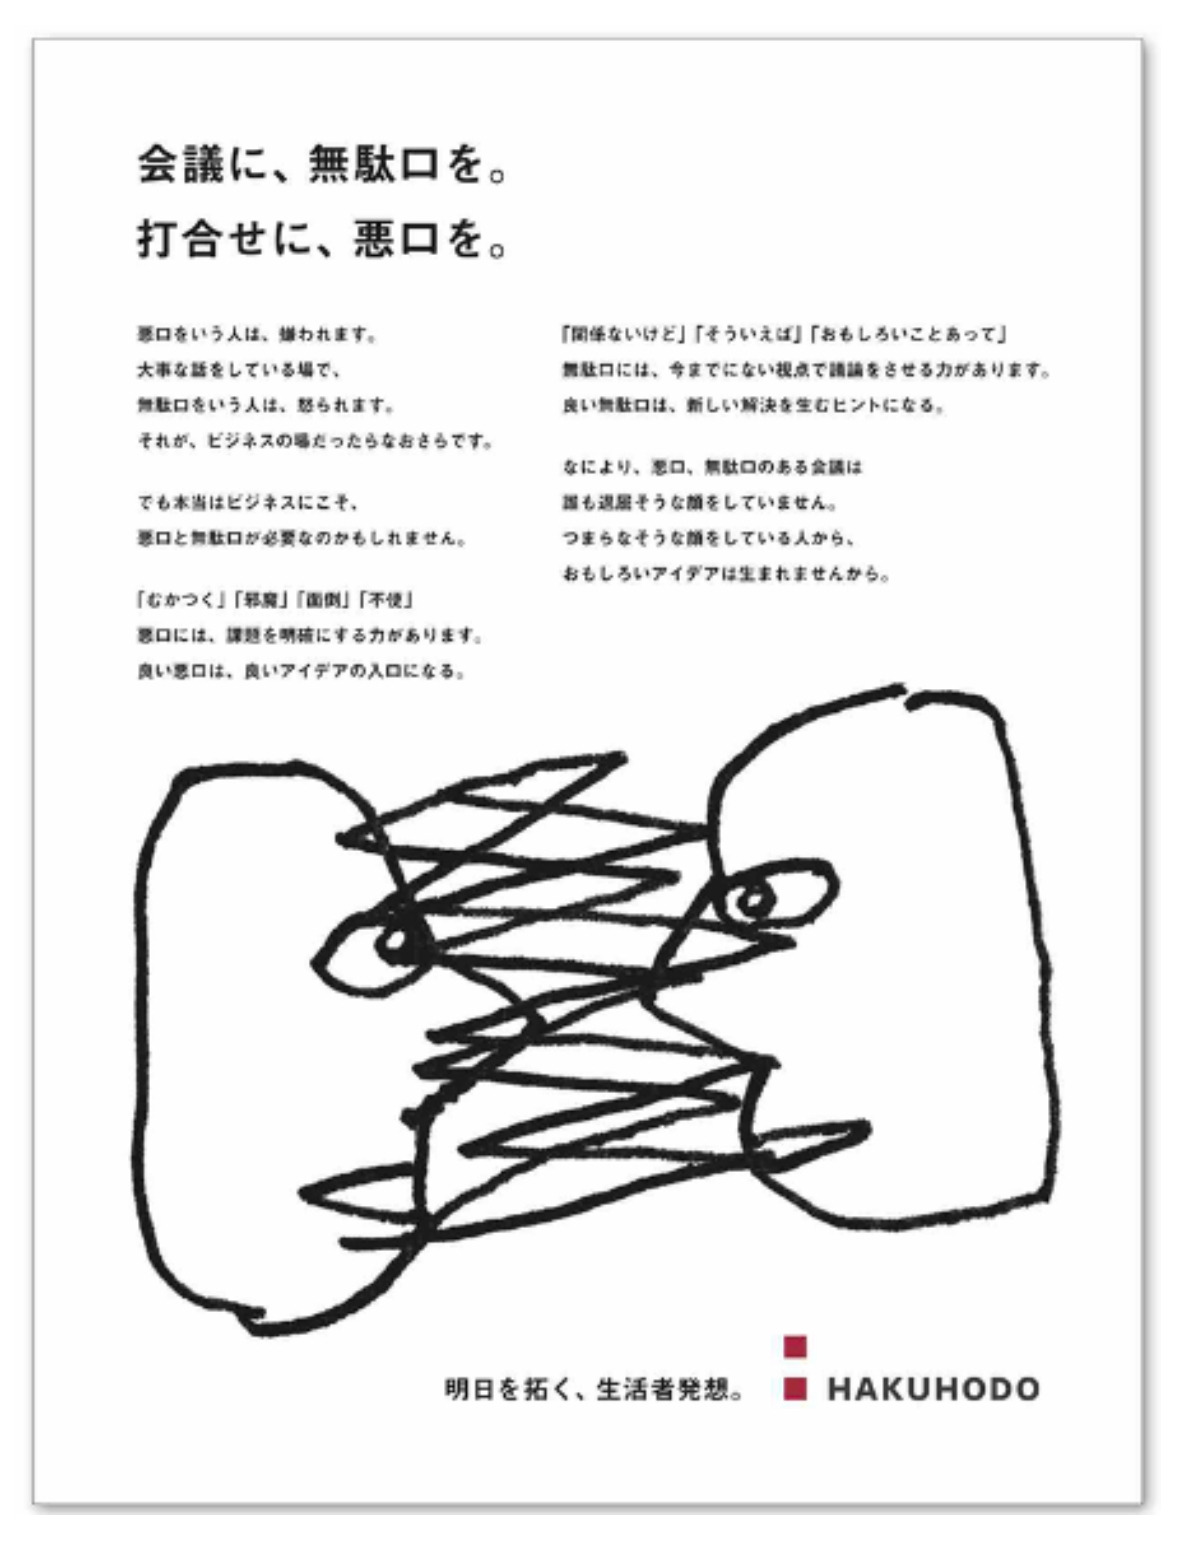 会議に、無駄口を。
打合せに、悪口を。
悪口をいう人は、嫌われます。
大事な話をしている場で、
無駄口をいう人は、怒られます。
それが、ビジネスの場だったらなおさらです。
でも本当はビジネスにこそ、
悪口と無駄口が必要なのかもしれません。
「むかつく」「邪魔」「面倒」「不便」
悪口には、課題を明確にする力があります。
良い悪口は、良いアイデアの入口になる。
「関係ないけど」「そういえば」「おもしろいことあって」
無駄口には、今までにない視点で議論をさせる力があります。
良い無駄口は、新しい解決を生むヒントになる。
なにより、悪口、無駄口のある会議は
誰も退屈そうな顔をしていません。
つまらなそうな顔をしている人から、
おもしろいアイデアは生まれませんから。
明日を拓く、生活者発想。
HAKUHODO